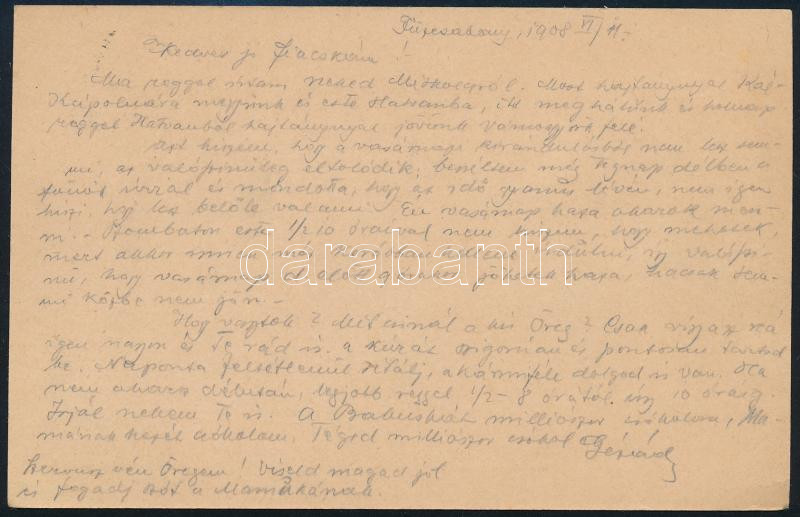 Füzesabony, 1908 VI/11.
Kedves jó Fiacskám!
Ma reggel írtam neked Miskolcról. Most hajtánnyal Kál-
Kápolnára megyünk és este Hatvanba, itt meghálunk és holnap
reggel Hatvanból hajtánnyal jövünk Vámosgyörk felé.
Azt hiszem, hogy a vasárnapi kirándulásból nem lesz sem-
mi, az valószínűleg eltolódik, beszéltem még tegnap délben a
úrral és mondotta, hogy az idő lévén, nem igen
hiszi, hogy lesz belőle valami. Én vasárnap haza akarok men-
ni. - Szombaton este 1/2 10 órával nem hiszem, hogy mehetek,
mert akkor innen már kellene indulni, így valószí-
nű, hogy vasárnap az jöhetek haza, hacsak sem-
mi közbe nem jön. -
Hogy vagytok? Mit csinál a kis Öreg? Csak vigyázz reá
igen nagyon és Te rád is. a kúrát szigorúan és pontosan tartsd
be. Naponta feltétlenül sétálj, akármiféle dolgod is van. Ha
nem akarsz délután, legjobb reggel 1/2-8 órától úgy 10 óráig.
Írjál nekem Te is. A Babuskát milliószor csókolom, Ma-
mának kezét csókolom, Téged milliószor csókol Gézád
Szervusz vén Öregem! Viseld magad jól
és fogadj szót a Mamükának.
darabanth